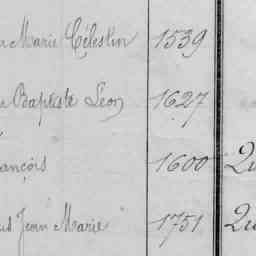 Marie Célestin 1539
Baptiste Léon 1627
ançois 1600 Qu
Jean Marie 1751 Qu